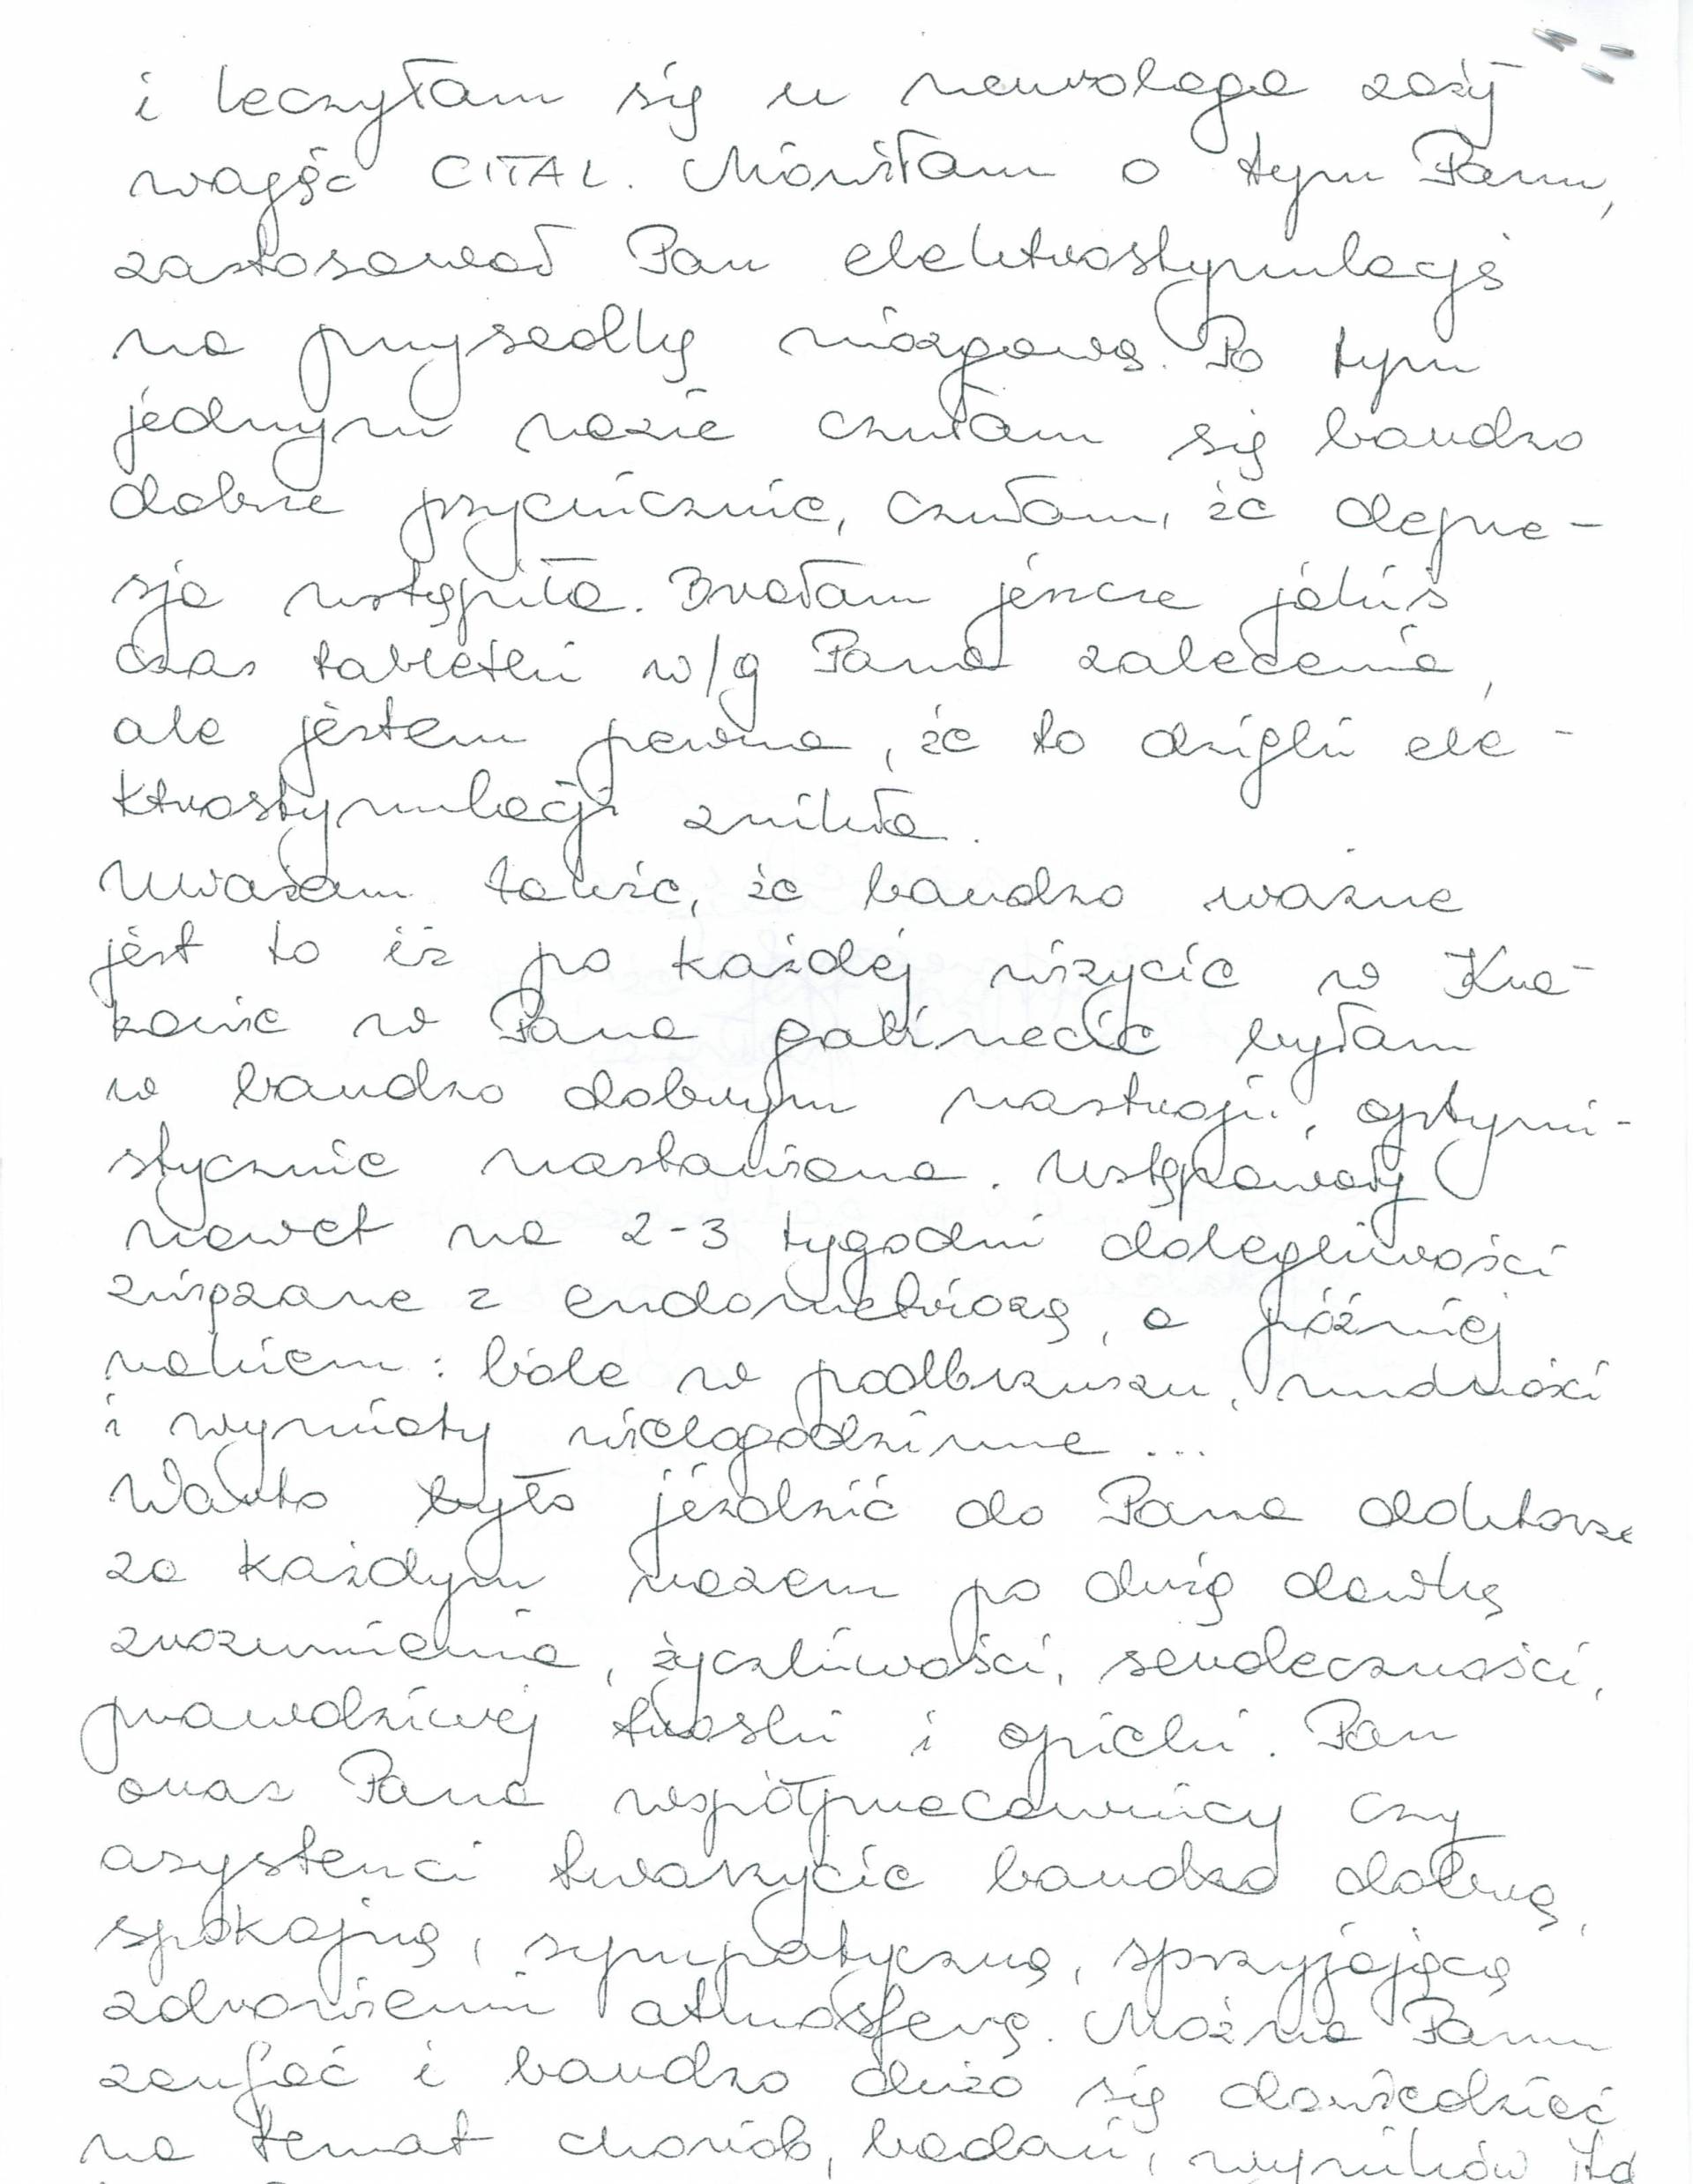 i leczyłam się u neurologa zaży
wając CITAL. Mówiłam o tym Panu,
zastosował Pan elektrostymulację
na przysadkę mózgową. Po tym
jednym razie czułam się bardzo
dobrze psychicznie, czułam, że depre-
sja ustąpiła. Brałam jeszcze jakiś
czas tabletki w/g Pana zalecenia,
ale jestem pewna, że to dzięki ele-
ktrostymulacji znikła.
Uważam także, że bardzo ważne
jest to iż po każdej wizycie w Kra-
kowie w Pana gabinecie byłam
w bardzo dobrym nastroju, optymi-
stycznie nastawiona. Ustępowały
nawet na 2-3 tygodni dolegliwości
związane z endometriozą, a później
rakiem: bóle w podbrzuszu, nudności
i wymioty wielogodzinne...
Warto było jeździć do Pana doktorze
za każdym razem po dużą dawkę
zrozumienia, życzliwości, serdeczności,
prawdziwej troski i opieki. Pan
oraz Pana współpracownicy czy
asystenci tworzycie bardzo dobrą,
spokojną, sympatyczną, sprzyjającą
zdrowieniu atmosferę. Można Panu
zaufać i bardzo dużo się dowiedzieć
na temat chorób, badań, wyników itd